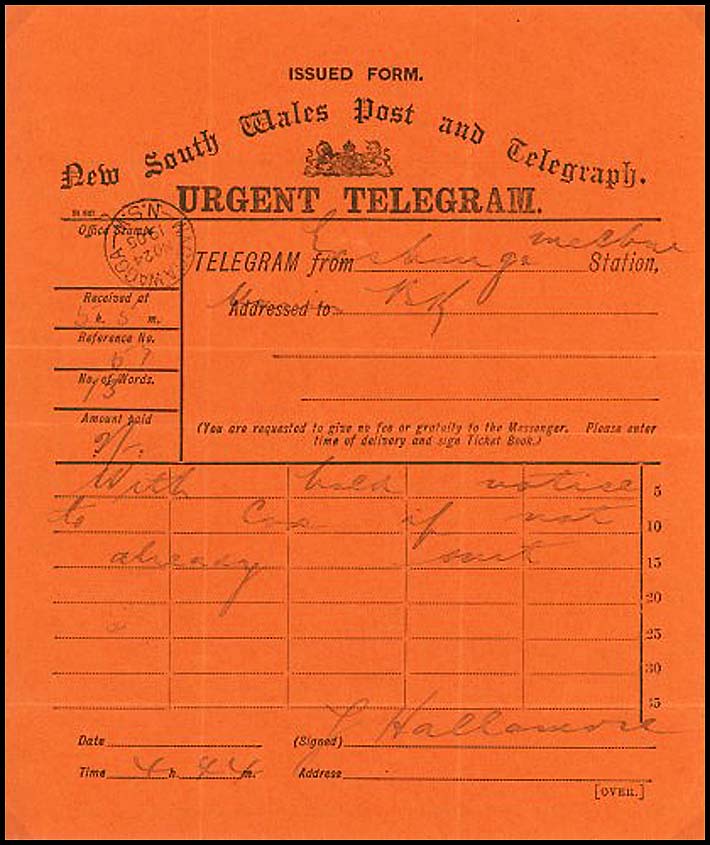 ISSUED FORM.
New South Wales Post and Telegraph.
URGENT TELEGRAM.
Office Stamp.
WAGGA WAGGA
24
1905
N.S.W.
TELEGRAM from Melbne Station,
Received at
5 h. 5 m.
Addressed to
Reference No.
57
No. of Words.
13
Amount paid
(You are requested to give no fee or gratuity to the Messenger. Please enter
time of delivery and sign Ticket Book.)
With hold notice 5
to Cox if not 10
already sent 15
20
25
30
35
Date (Signed) Hallamore
Time 4 h. 44 m. Address
[OVER.]